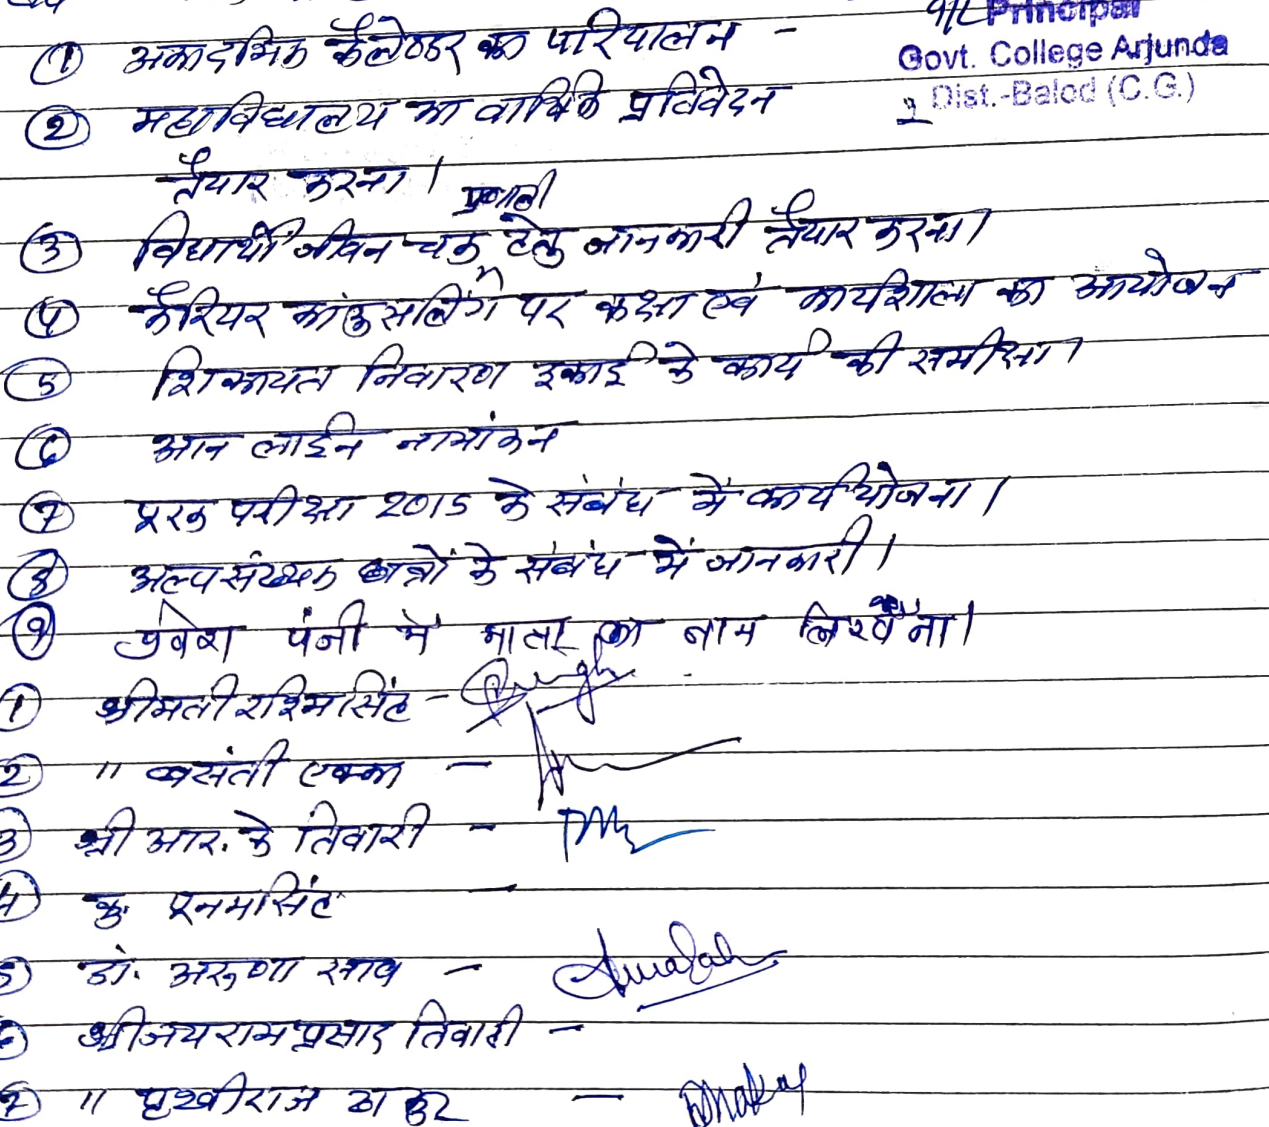 Principal
① अकादमिक कैलेण्डर का परिपालन -
Govt. College Arjunda
Dist.-Balod (C.G.)
② महाविद्यालय का वार्षिक प्रतिवेदन
तैयार करना।
प्रणाली
③ विद्यार्थी जीवन चक्र हेतु जानकारी तैयार करना।
④ कैरियर कांउसलिंग पर कक्षा एवं कार्यशाला का आयोजन
⑤ शिकायत निवारण इकाई के कार्य की समीक्षा।
⑥ आन लाईन नामांकन
⑦ पूरक परीक्षा 2015 के संबंध में कार्ययोजना।
⑧ अल्प संख्यक छात्रों के संबंध में जानकारी।
⑨ प्रवेश पंजी में माता का नाम
① श्रीमती रश्मि सिंह -
② " बसंती एक्का -
③ श्री आर. के तिवारी -
④ कु. पूनम सिंह -
⑤ डॉ. अरुणा साव -
⑥ श्री जयराम प्रसाद तिवारी -
⑦ " पृथ्वीराज ठाकुर -